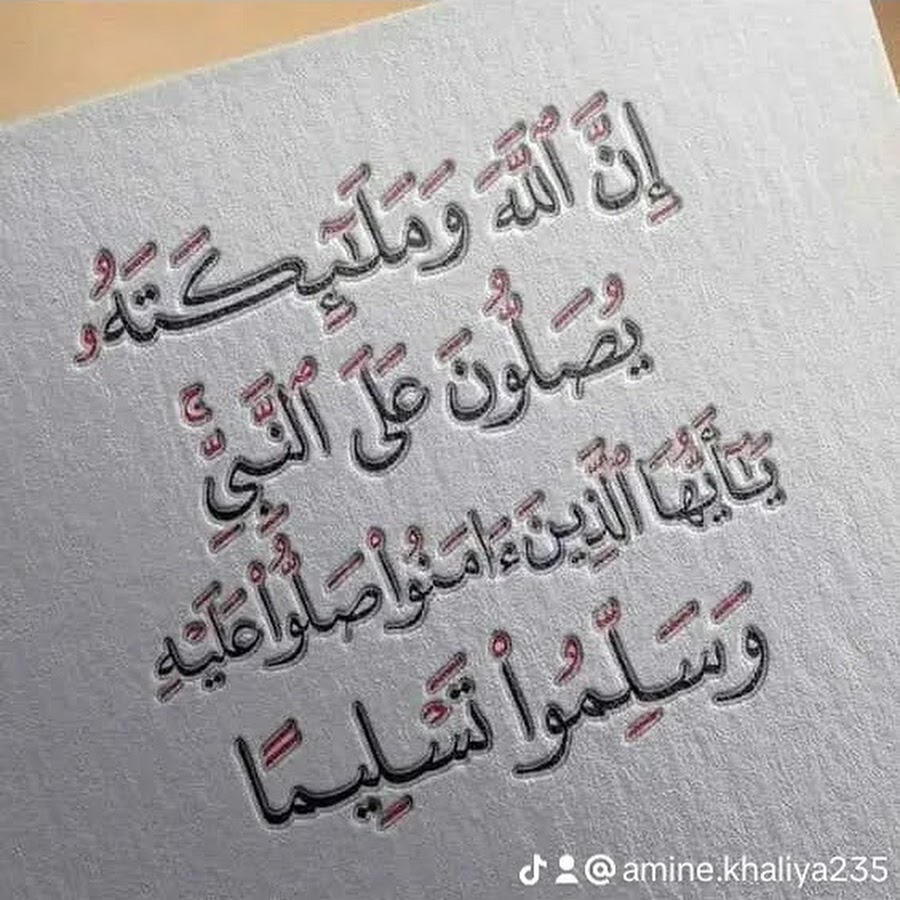 إِنَّ ٱللَّهَ وَمَلَـٰٓئِكَتَهُۥ
يُصَلُّونَ عَلَى ٱلنَّبِىِّ ۚ
يَـٰٓأَيُّهَا ٱلَّذِينَ ءَامَنُوا۟ صَلُّوا۟ عَلَيْهِ
وَسَلِّمُوا۟ تَسْلِيمًا
@amine.khaliya235